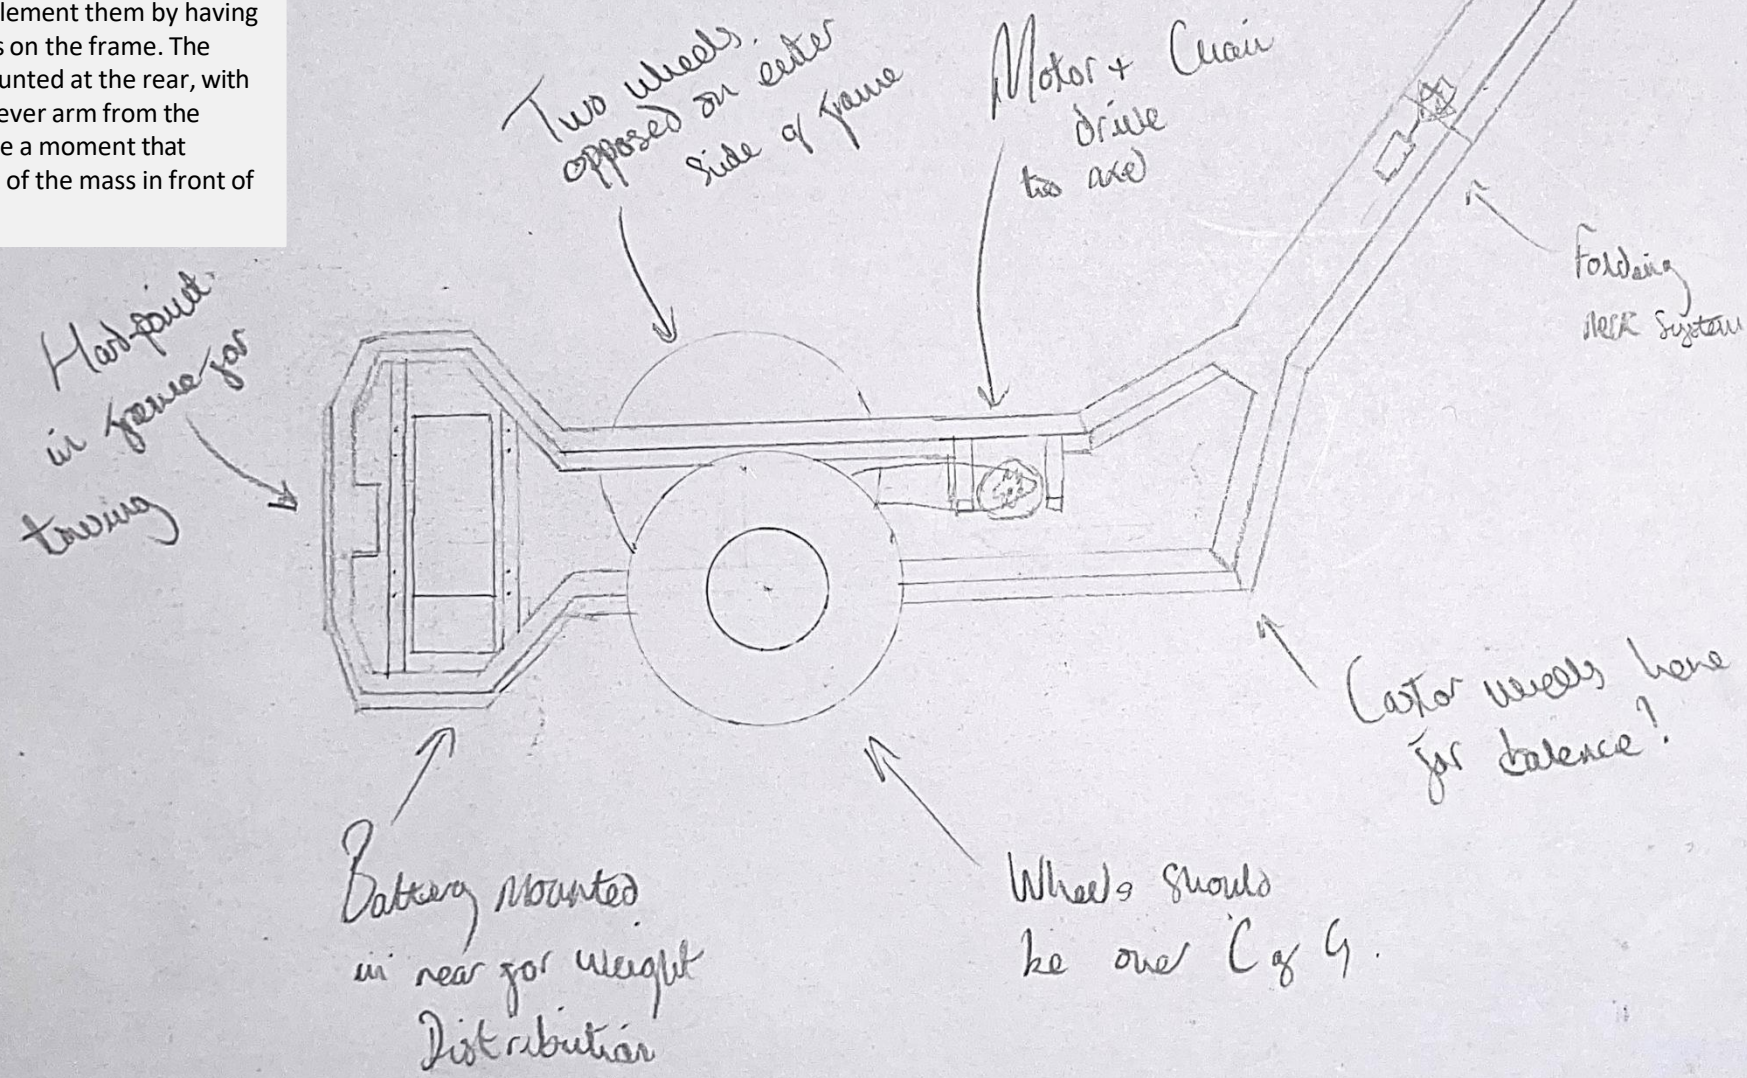 element them by having
s on the frame. The
unted at the rear, with
ever arm from the
e a moment that
of the mass in front of
Two wheels.
opposed on eater
side of frame
Motor + Chain
drive
to axel
Folding
neck System
Hard-point.
in frame for
towing
Castor wheels here
for balence!
Battery Mounted
in rear for weight
Distribution
Wheels Should
be over C of G.